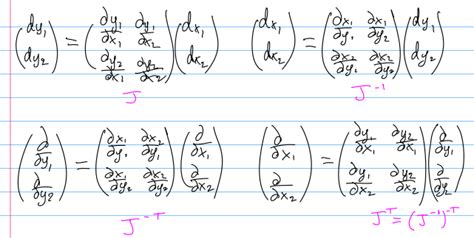 (dy₁ dy₂) = (∂y₁/∂x₁ ∂y₁/∂x₂ ∂y₂/∂x₁ ∂y₂/∂x₂) (dx₁ dx₂)
J
(dx₁ dx₂) = (∂x₁/∂y₁ ∂x₁/∂y₂ ∂x₂/∂y₁ ∂x₂/∂y₂) (dy₁ dy₂)
J⁻¹
(∂/∂y₁ ∂/∂y₂) = (∂x₁/∂y₁ ∂x₂/∂y₁ ∂x₁/∂y₂ ∂x₂/∂y₂) (∂/∂x₁ ∂/∂x₂)
J⁻ᵀ
(∂/∂x₁ ∂/∂x₂) = (∂y₁/∂x₁ ∂y₂/∂x₁ ∂y₁/∂x₂ ∂y₂/∂x₂) (∂/∂y₁ ∂/∂y₂)
Jᵀ = (J⁻¹)⁻ᵀ